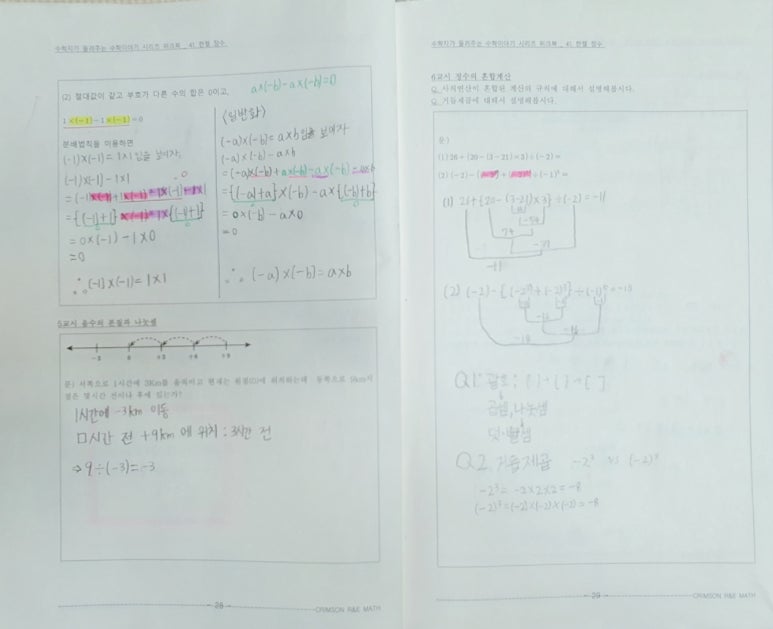 수학자가 들려주는 수학이야기 시리즈 워크북 _ 41 한별 정수
(2) 절대값이 같고 부호가 다른 수의 합은 0이고,
a×(-b)-a×(-b)=0
1×(-1)-1×(-1)=0
분배법칙을 이용하면
(-1)×(-1)=1×1임을 보이자.
(-1)×(-1)-1×1
=0×(-1)-1×0
=0
∴(-1)×(-1)=1×1
<일반화>
(-a)×(-b)=a×b임을 보이자
(-a)×(-b)-a×b
=(-a)×(-b)+a×(-b)-a×(-b)-a×b
={(-a)+a}×(-b)-a×{(-b)+b}
=0×(-b)-a×0
=0
∴(-a)×(-b)=a×b
5교시 음수의 본질과 나눗셈
-3 0 +3 +6 +9
문) 서쪽으로 1시간에 3Km를 움직이고 현재는 원점(0)에 위치하는데 동쪽으로 9km지
점은 몇시간 전이나 후에 있는가?
1시간에 -3km 이동
□시간 전 +9km에 위치 : 3시간 전
⇒ 9÷(-3)=-3
- 28 -
CRIMSON R&E MATH
수학자가 들려주는 수학이야기 시리즈 워크북 _ 41 한별 정수
6교시 정수의 혼합계산
Q. 사칙연산이 혼합된 계산의 규칙에 대해서 설명해봅시다.
Q. 거듭제곱에 대해서 설명해봅시다.
문)
(1) 26+{20-(3-21)×3}÷(-2)=
(1) 26+{20-(3-21)×3}÷(-2)=-11
-18
-54
74
-37
-11
(2) (-2)-{(-2³)+(-2)³}÷(-1)⁵=-18
-16
-18
Q1: 괄호 : ( )→{ }→[ ]
곱셈, 나눗셈
덧·뺄셈
Q2. 거듭제곱 -2³ vs (-2)³
-2³=-2×2×2=-8
(-2)³=(-2)×(-2)×(-2)=-8
- 29 -
CRIMSON R&E MATH